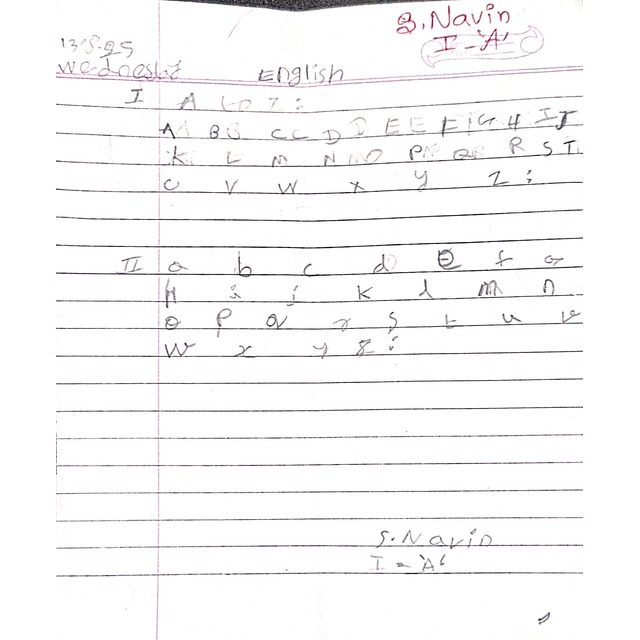 S.Navin
I - 'A'
13.8.25
English
I A to Z :
A A B B C C D D E E F G H I J
K L M N O P Q R S T
U V W X Y Z :
II a b c d e f G
H i j k l m n
o p q r s t u v
w x y z :
S.Navin
I - 'A'